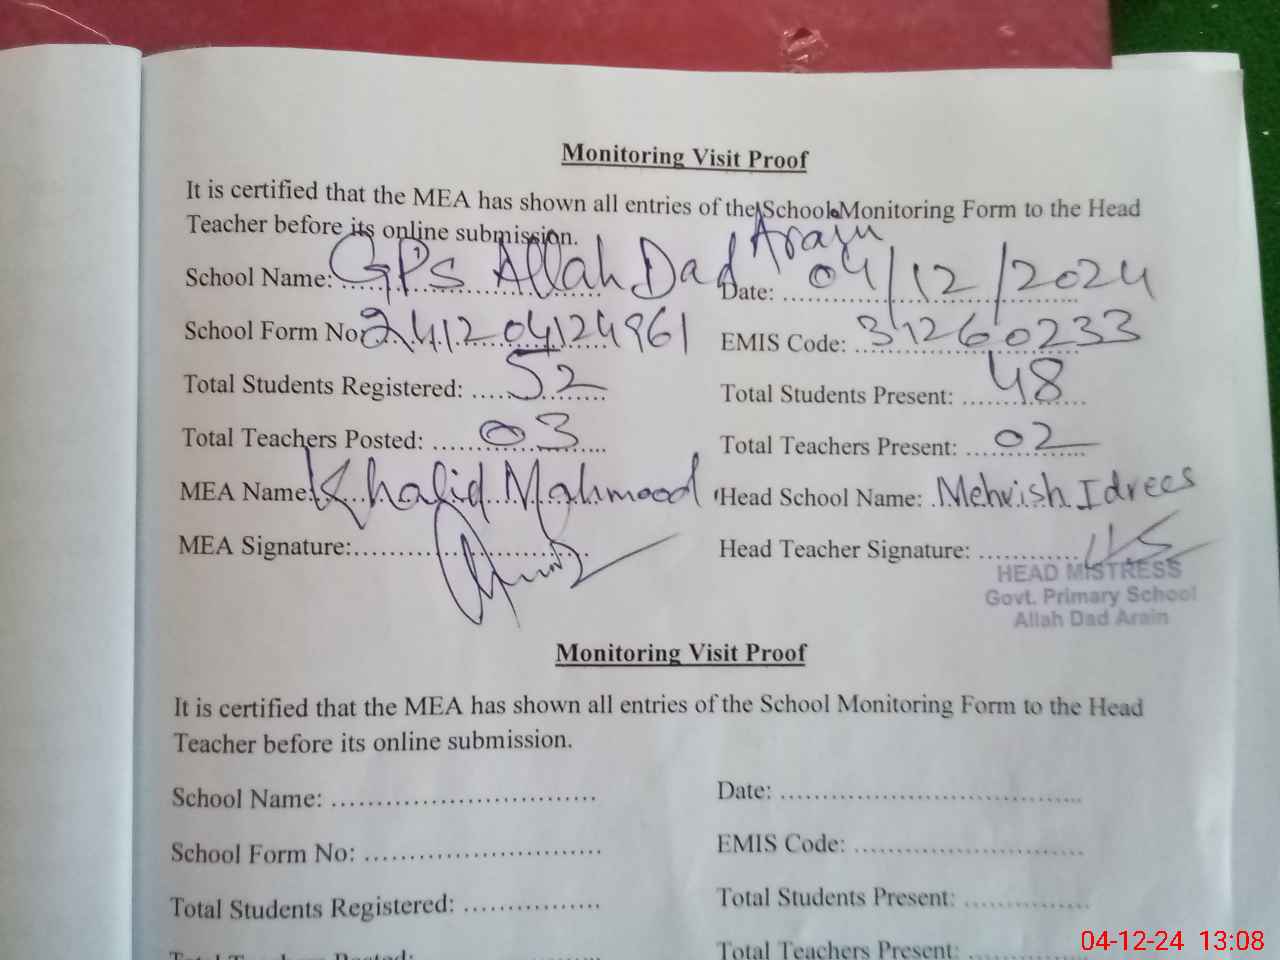 Monitoring Visit Proof
It is certified that the MEA has shown all entries of the School Monitoring Form to the Head
Teacher before its online submission.
School Name: GPS Allah Dad Arain Date: 04/12/2024
School Form No: 241204124961 EMIS Code: 31260233
Total Students Registered: 52 Total Students Present: 48
Total Teachers Posted: 03 Total Teachers Present: 02
MEA Name: Khalid Mahmood Head School Name: Mehvish Idrees
MEA Signature: Head Teacher Signature:
HEAD MISTRESS
Govt. Primary School
Allah Dad Arain
Monitoring Visit Proof
It is certified that the MEA has shown all entries of the School Monitoring Form to the Head
Teacher before its online submission.
School Name: Date:
School Form No: EMIS Code:
Total Students Registered: Total Students Present:
Total Teachers Posted: Total Teachers Present:
04-12-24 13:08